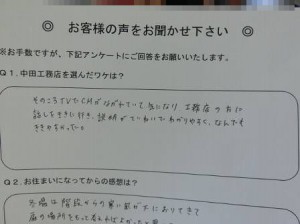 ◎ お客様の声をお聞かせ下さい ◎
※お手数ですが、下記アンケートにご回答をお願いいたします。
Q1. 中田工務店を選んだワケは?
そのころTVでCMがながれていて、気になり 工務店の方に
話しをききに行き、説明がていねいでわかりやすく、なんでも
ききやすかった。
Q2. お住まいになってからの感想は?
冬場は階段からの寒い風が下におりてきて
扉の場所を